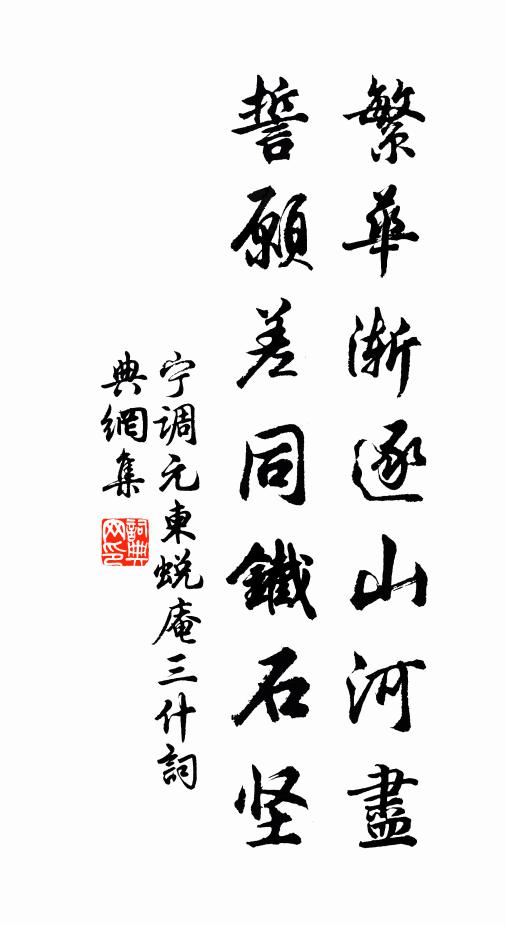 繁華漸逐山河盡
誓願差同鐵石坚
宁调元東蜕庵三什詞
典網集
詞典网印